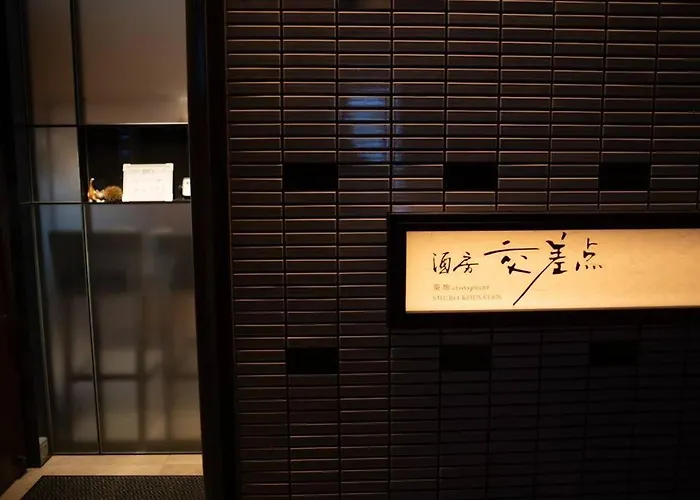 酒房 交差点
SHUBO KOUSATEN